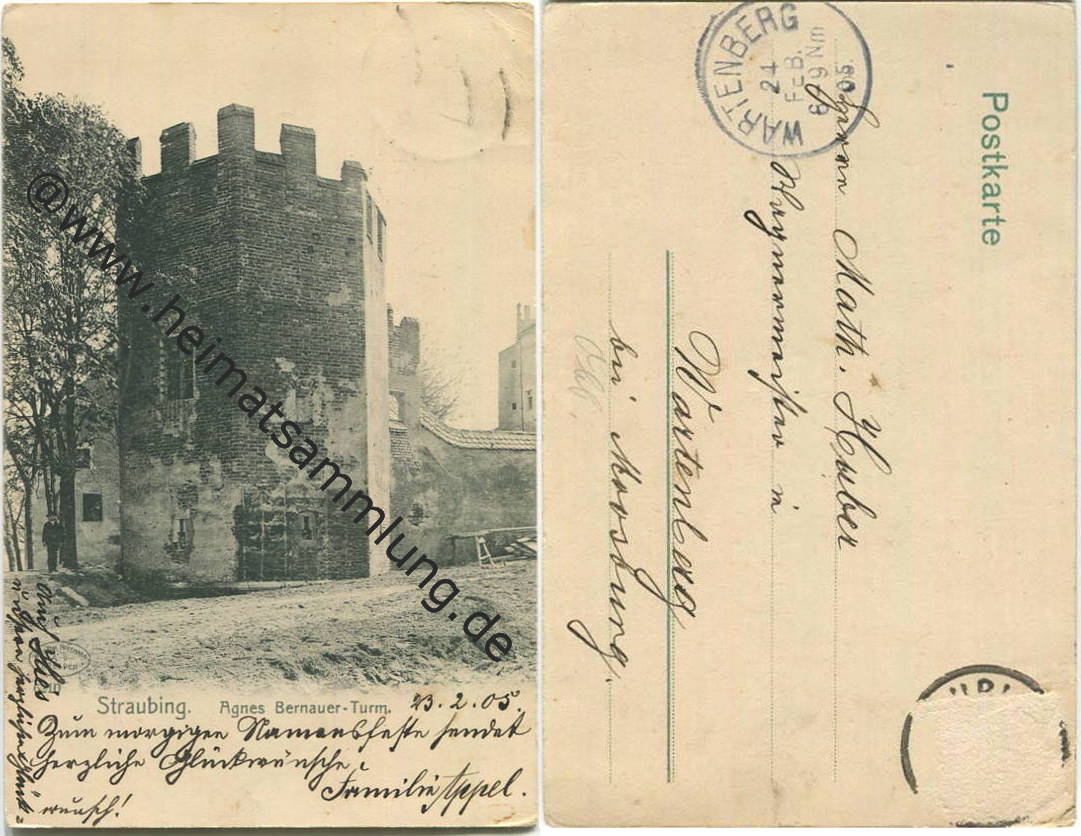 Straubing. Agnes Bernauer-Turm. 23. 2. 05.
Zum morgigen Namensfeste sendet
herzliche Glückwünsche,
Familie Appel.
wunsch!
@www.heimatsammlung.de
Postkarte
WARTENBERG
24
FEB.
05.
Herrn Math. Huber
in
Wartenberg
bei Moosburg.